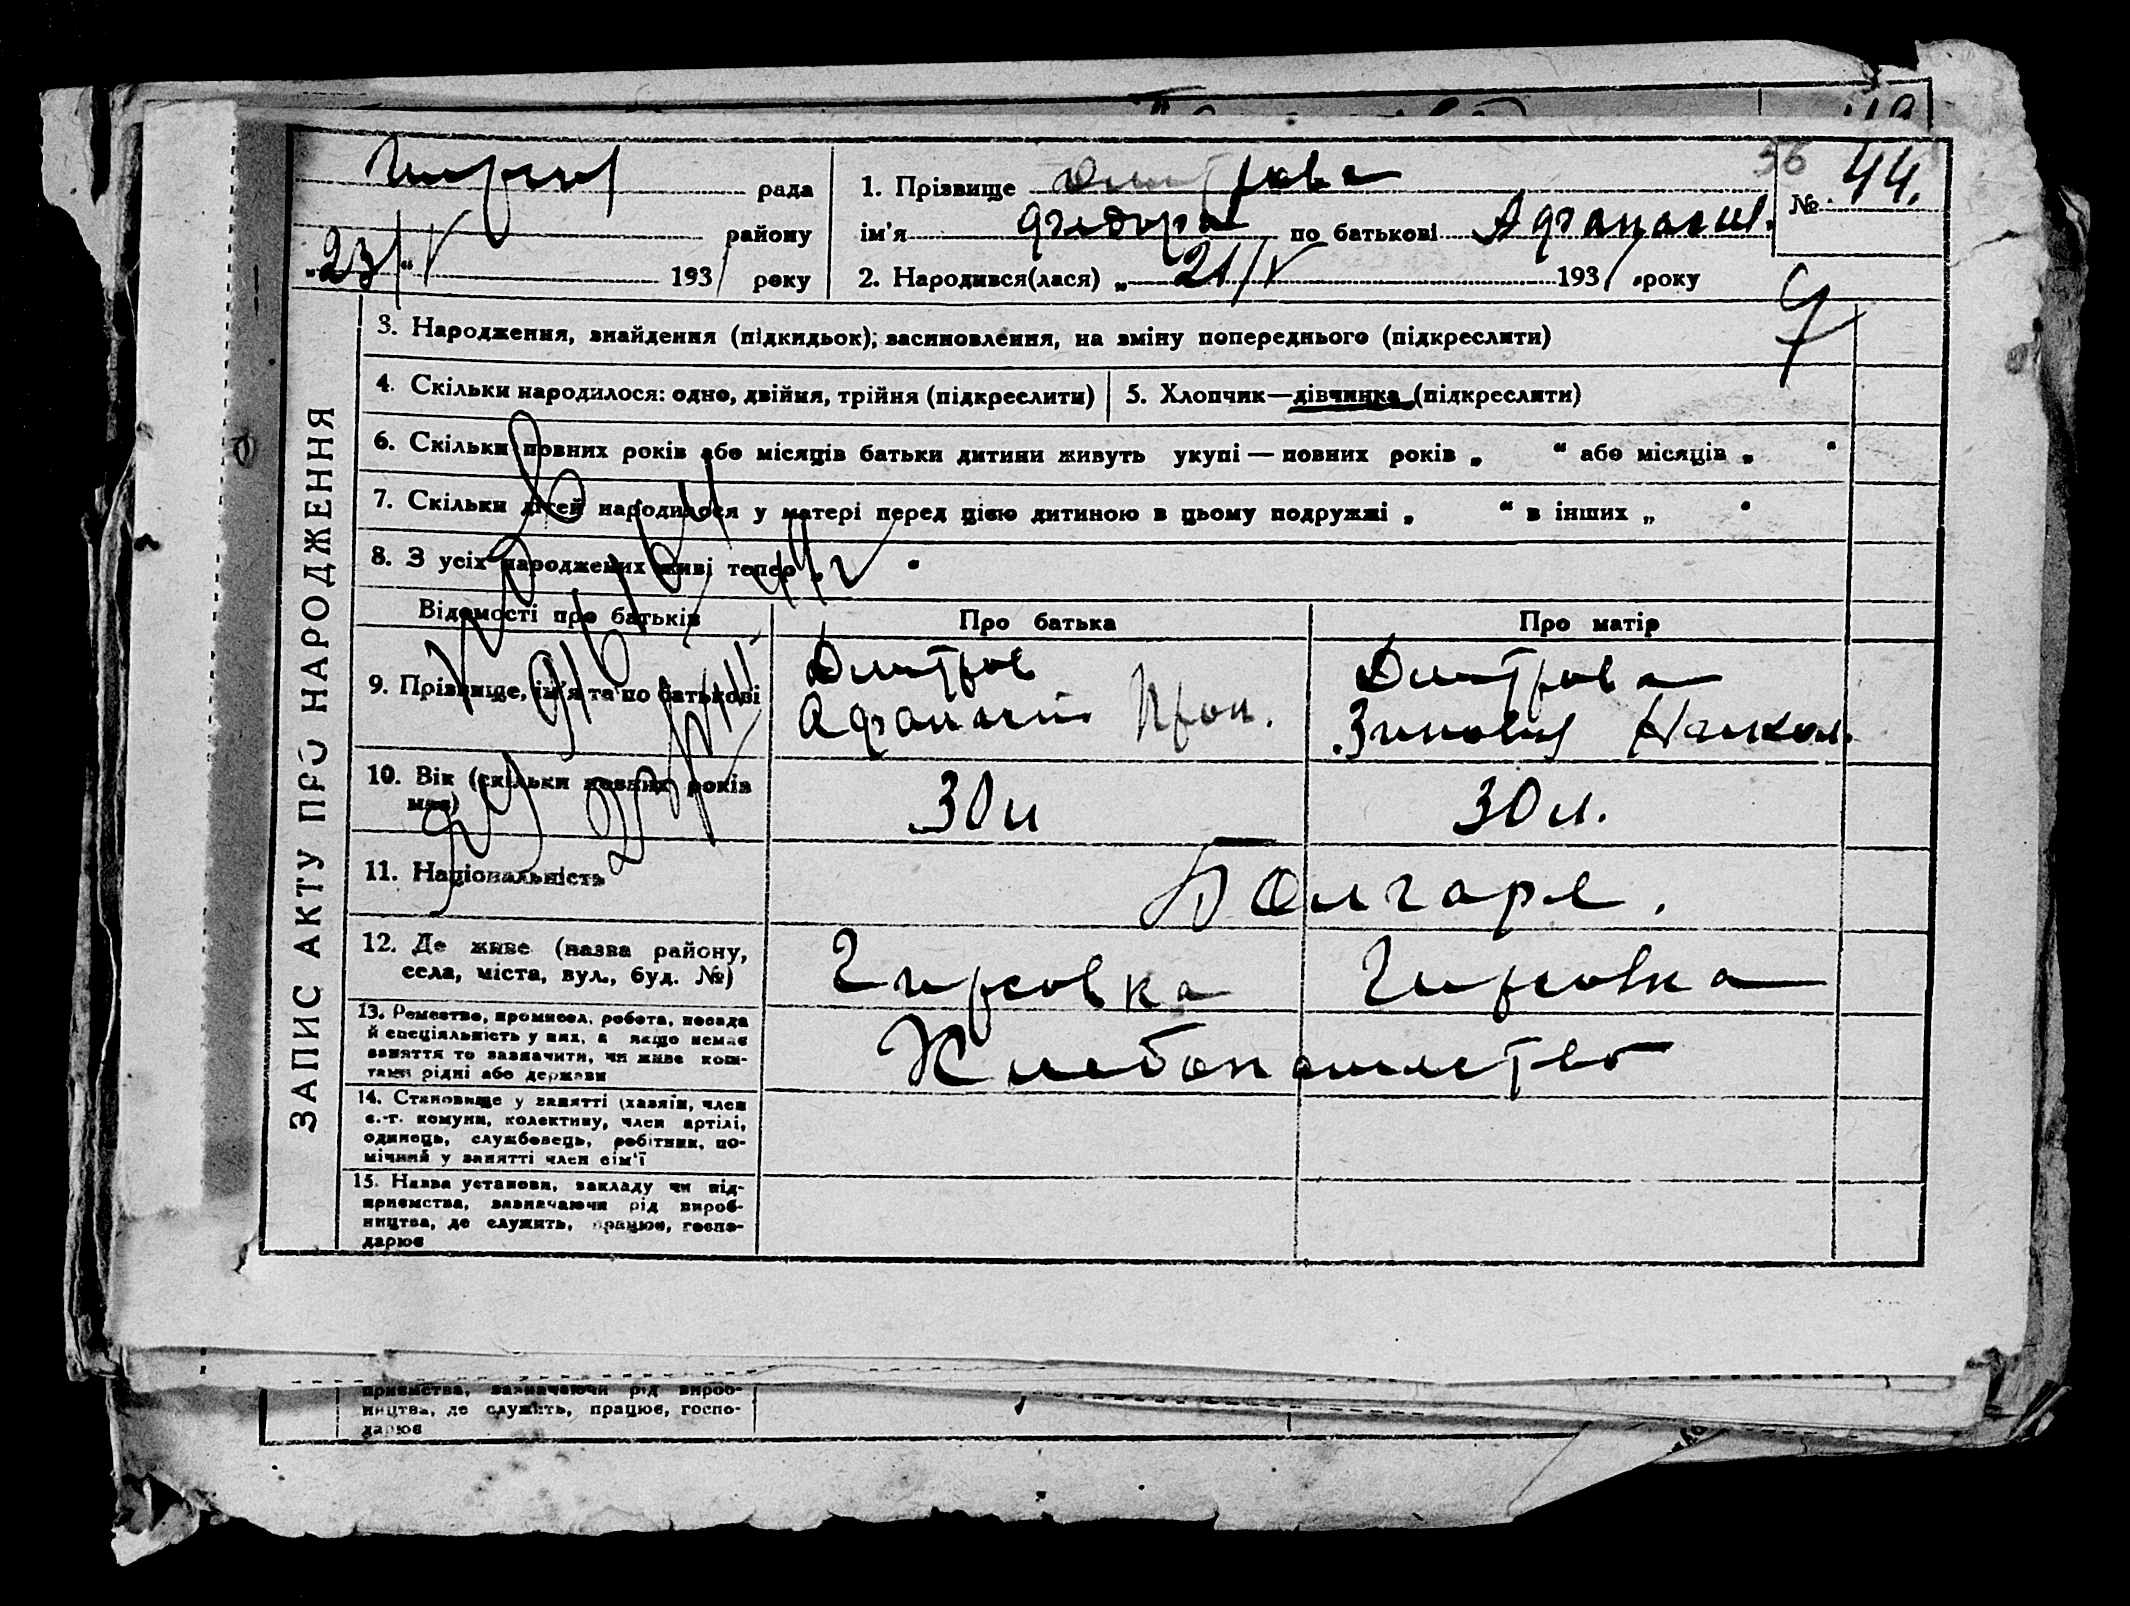 36
№ 44.
рада
1. Прізвище Дмитрова
району
ім'я Федора по батькові Афанасиев.
"23/"V 1931 року
2. Народився(лася) „ 21/V 1931 року
ЗАПИС АКТУ ПРО НАРОДЖЕННЯ
3. Народження, знайдення (підкидьок); засиновлення, на зміну попереднього (підкреслити)
4. Скільки народилося: одно, двійня, трійня (підкреслити)
5. Хлопчик—дівчинка (підкреслити)
6. Скільки повних років або місяців батьки дитини живуть укупі — повних років „ “ або місяців „ “
7. Скільки дітей народилося у матері перед цією дитиною в цьому подружжі „ “ в інших „ “
8. З усіх народжених живі тепер „
Відомості про батьків
Про батька
Про матір
9. Прізвище, ім'я та по батькові
Дмитров
Афанасий Проп.
Дмитрова
Зиновия Никол.
10. Вік (скільки повних років
має)
30 л
30 л.
11. Національність
Болгаре.
12. Де живе (назва району,
села, міста, вул., буд. №)
Гирсовка
Гирсовка
13. Ремество, промисел, робота, посада
й спеціяльність у них, а якщо немає
заняття то зазначити, чи живе кош-
таки рідні або держави
Хлебопашество
14. Становище у занятті (хазяїн, член
с.-г. комуни, колективу, член артілі,
одинець, службовець, робітник, по-
мічний у занятті член сім'ї
15. Назва установи, закладу чи під-
приємства, зазначаючи рід вироб-
ництва, де служить, працює, госпо-
дарює
приємства, зазначаючи рід вироб-
ництва, де служить, працює, госпо-
дарює